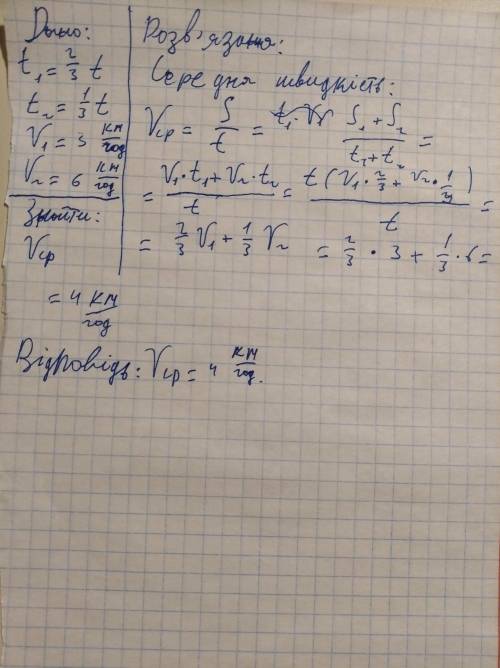 Дано:
t₁ = 2/3 t
t₂ = 1/3 t
V₁ = 3 км/год
V₂ = 6 км/год
Знайти:
Vср
Розв'язання:
Середня швидкість:
Vср = S/t = (S₁ + S₂)/(t₁ + t₂) =
= (V₁ · t₁ + V₂ · t₂)/t = t(V₁ · 2/3 + V₂ · 1/3)/t =
= 2/3 V₁ + 1/3 V₂ = 2/3 · 3 + 1/3 · 6 =
= 4 км/год
Відповідь: Vср = 4 км/год.